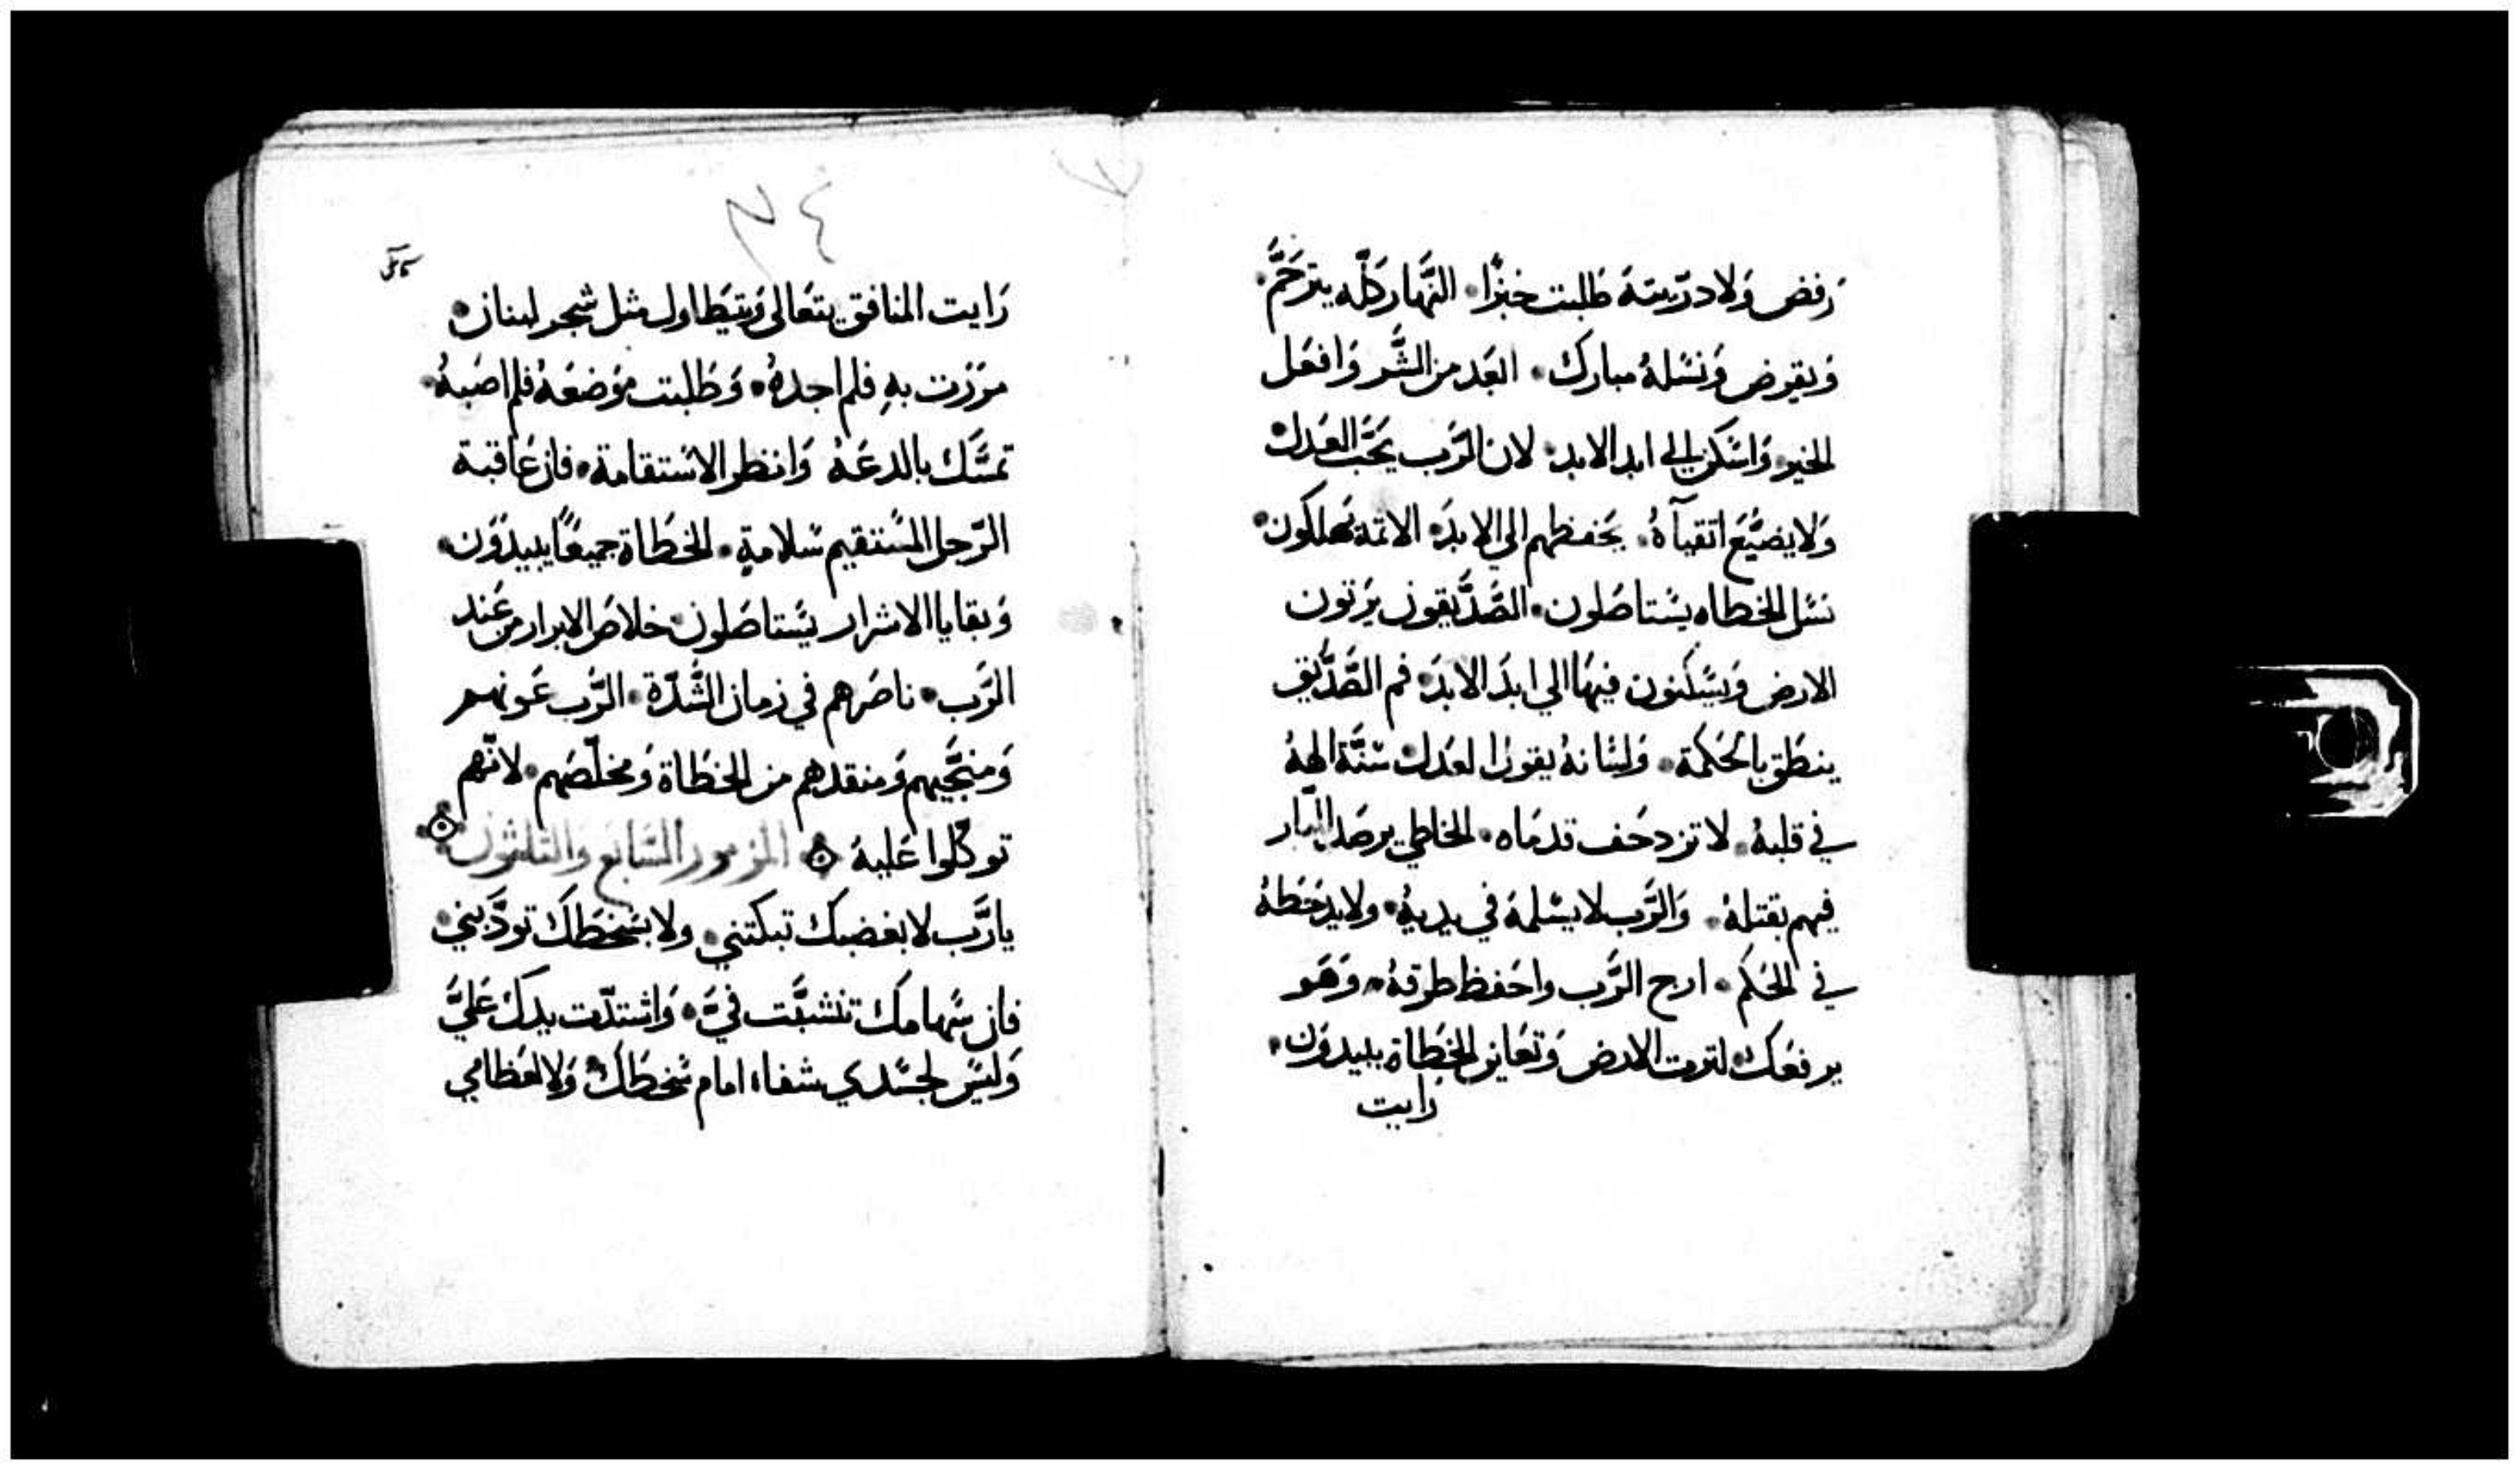 رفض وَلا درّيتهَ طلبت خبزًا۰ النَّهار كلّه يترحَّم۰
وَيقرض وَنسْلهُ مبارك۰ ابعَد من الشَّر وَافعَل
الخير۰ وَاسْكن الى ابد الابد۰ لان الرَّب يحَبّ العَدل۰
وَلا يضيَّع اتقيآهُ۰ يحَفظهم الى الابدَ۰ الاثمة يهلكون۰
نسْل الخطاه يسْتاصَلون۰ الصَّدَّيقون يرَتون
الارض وَيسْكنون فيهَا الي ابدَ الابدَ۰ فم الصَّدَّيق
ينطَق بالحَكمة۰ وَلسْانهُ يقول العَدل۰ سْنَّة الههُ
في قلبهُ۰ لا تزدحَف قدمَاه۰ الخاطي يرصَد البّار
فيهم بقتلهُ۰ وَالرَّب لا يسْلمهُ في يديهُ۰ ولا يدحَظهُ
في الحَكم۰ ارج الرَّب واحَفظ طرقهُ۰ وَهَو
يرفعَك۰ لترت الارض وَتعَاين الخطاة يبيدوَن۰
رَايت
٣٤
رَايت المنافق يتعَالى وَيتطَاول مثل شجر لبنان۰
مرَرَت بهِ فلم اجدهُ۰ وَطَلبت موَضعَهُ فلم اصَبهُ۰
تمسَّك بالدعَهُ وَانظر الاسْتقامة۰ فان عَاقبة
الرّجل المسْتقيم سْلامةٍ۰ الخطَاة جميعًا يبيدوَن۰
وَبقايا الاشرار يسْتاصَلون۰ خلاصَ الابرار من عَند
الرَّب۰ ناصَرهم في زمان الشَّدّة۰ الرَّب عَونهم
وَمنجَّيهم وَمنقدهم من الخطَاة وَمخلّصَهم۰ لانّهم
توكّلوا عَليهُ ۞ المزمور السَّابع والثلثون۰ ۞
يا رَّب لا بغضبك تبكتني۰ ولا بسْخطَك تودَّبني۰
فان سْهامك تنشبَّت فيَّ۰ وَاشتدّت يدك عَليَّ
وَليسَ لجسْدي شفاء امام سْخطَك۰ وَلا لعَظامي